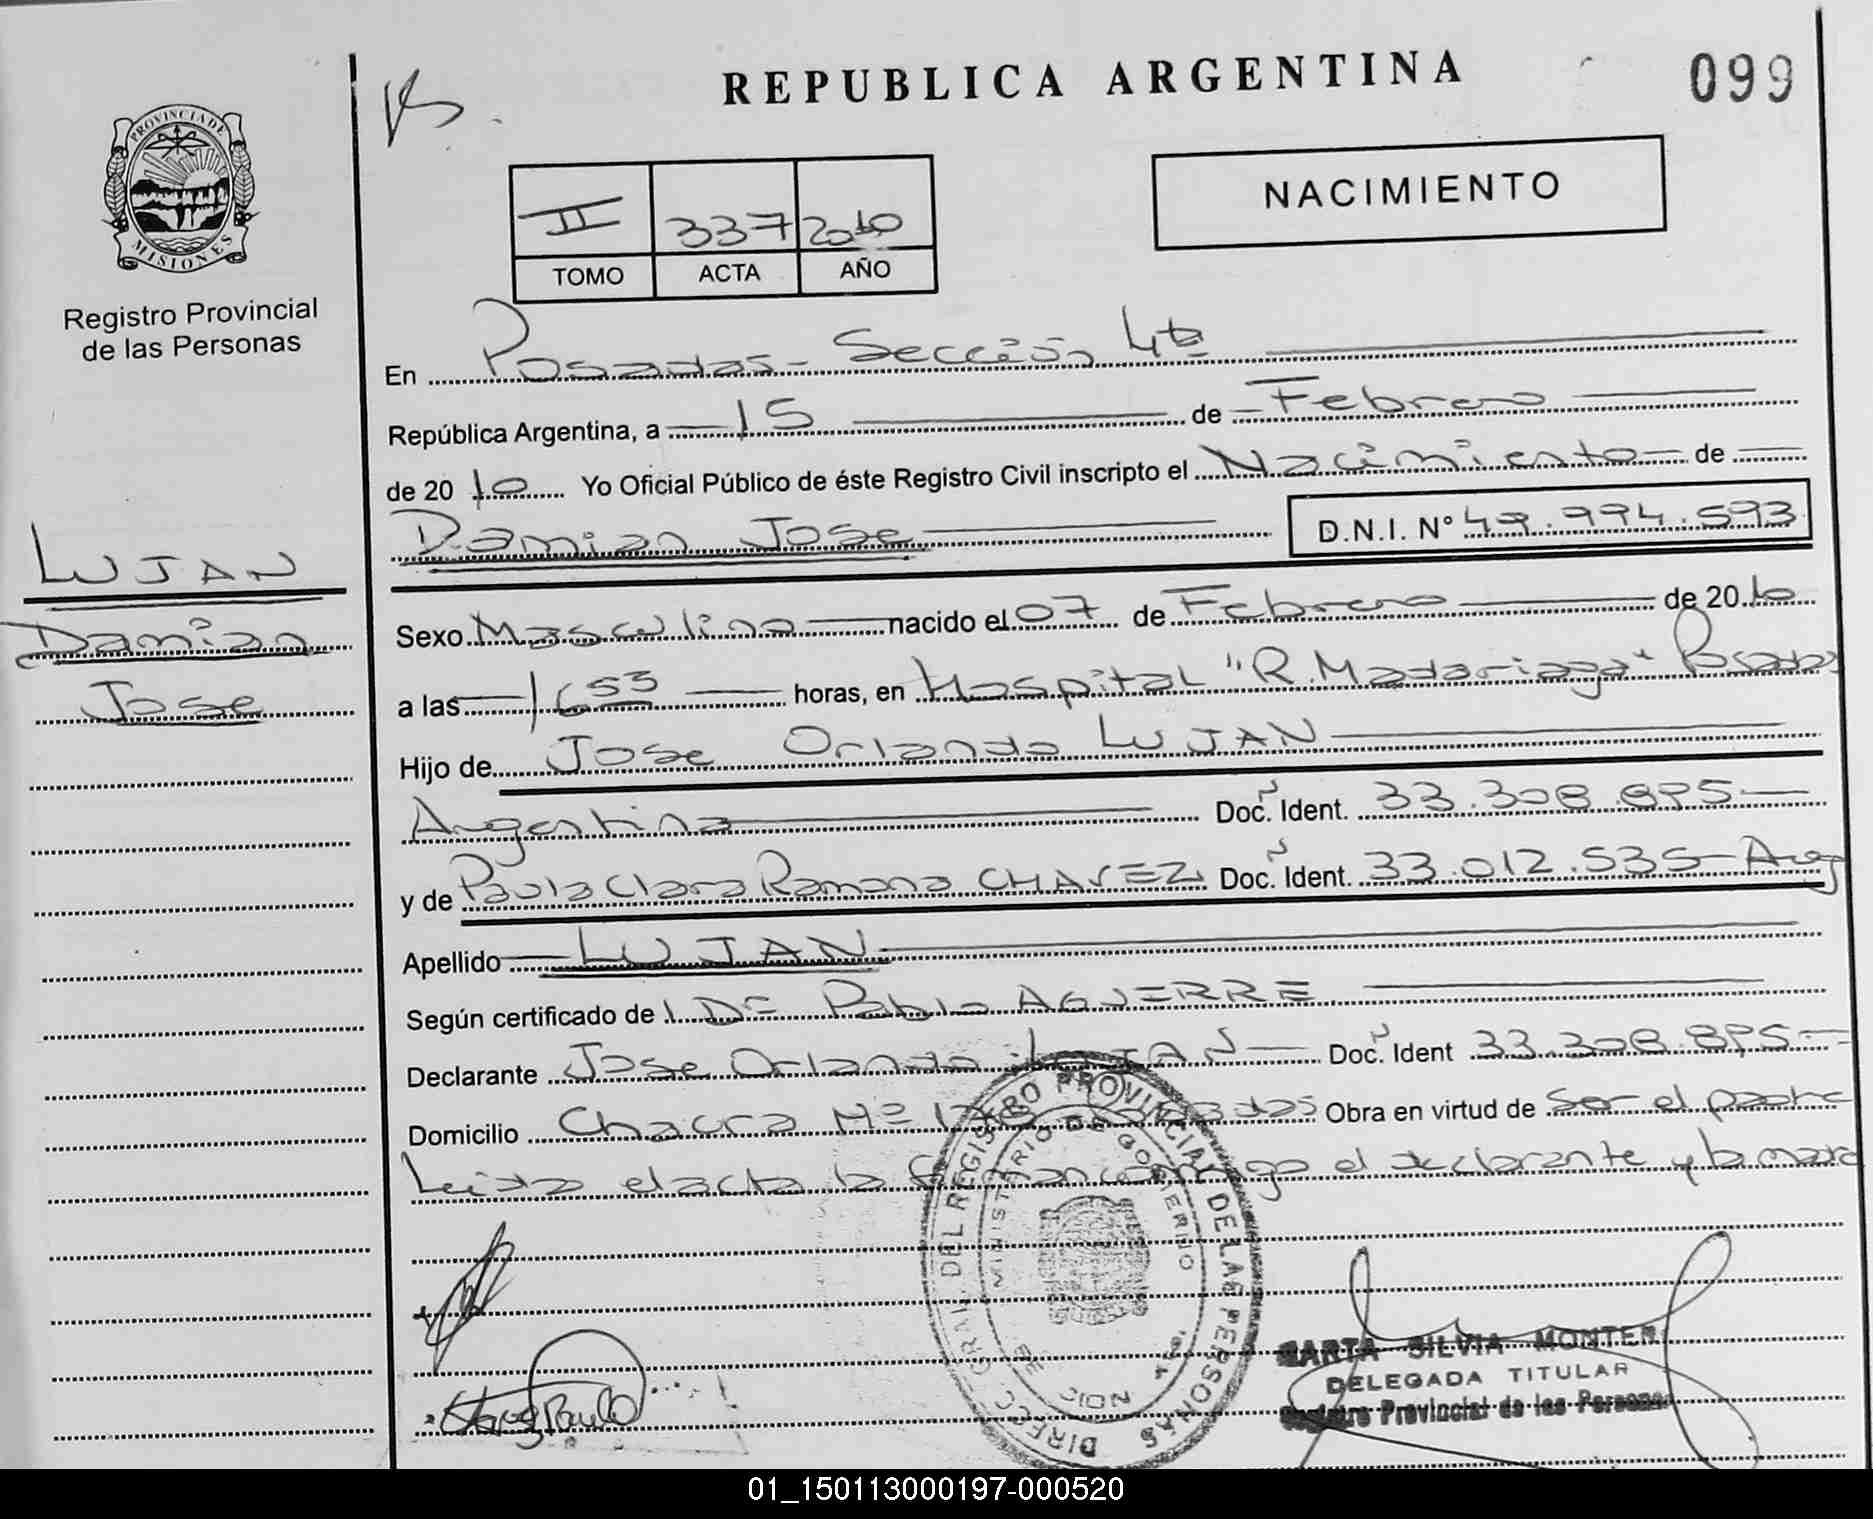 REPUBLICA ARGENTINA
099
PROVINCIA DE
MISIONES
Registro Provincial
de las Personas
NACIMIENTO
II 337 2010
TOMO ACTA AÑO
En Posadas - Sección 4ta
República Argentina, a 15 de Febrero
de 2010 Yo Oficial Público de éste Registro Civil inscripto el Nacimiento de
Damian Jose D.N.I. Nº 49.994.593
LUJAN
Damian
Jose
Sexo Masculino nacido el 07 de Febrero de 2010
a las 16 53 horas, en Hospital "R. Madariaga" Posadas
Hijo de Jose Orlando LUJAN
Argentina Doc. Ident. 33.308.895
y de Paula Clara Ramona CHAVEZ Doc. Ident. 33.012.535 - Arg
Apellido LUJAN
Según certificado de Pablo AGUERRE
Declarante Jose Orlando LUJAN Doc. Ident 33.308.895
Domicilio Chacra Nº Obra en virtud de Ser el padre
Leida el acta la firman conmigo el declarante y la madre
DIREC. GRAL. DEL REGISTRO PROVINCIAL DE LAS PERSONAS
MINISTERIO DE GOBIERNO
SILVIA MONTER
DELEGADA TITULAR
Registro Provincial de las Personas
01_150113000197-000520